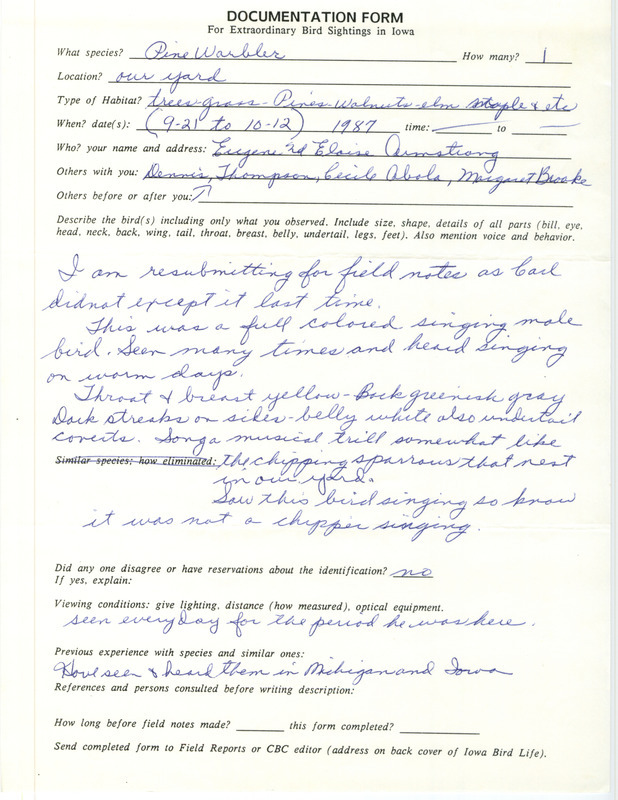 DOCUMENTATION FORM
For Extraordinary Bird Sightings in Iowa
What species? Pine Warbler How many? 1
Location? our yard
Type of Habitat? trees-grass-Pines-Walnuts-elm maple & etc
When? date(s): (9-21 to 10-12) 1987 time: to
Who? your name and address: Eugene Eloise Armstrong
Others with you: Dennis, Thompson, Cecile Abola, Margaret Brooke
Others before or after you:
Describe the bird(s) including only what you observed. Include size, shape, details of all parts (bill, eye,
head, neck, back, wing, tail, throat, breast, belly, undertail, legs, feet). Also mention voice and behavior.
I am resubmitting for field notes as Carl
didnot except it last time.
This was a full colored singing male
bird. Seen many times and heard singing
on warm days.
Throat & breast yellow-Back greenish gray
Dark streaks on sides-belly white also undertail
coverts. Song a musical trill somewhat like
Similar species; how eliminated: the chipping sparrows that nest
in our yard.
Saw this bird singing so know
it was not a chipper singing.
Did any one disagree or have reservations about the identification? no
If yes, explain:
Viewing conditions: give lighting, distance (how measured), optical equipment.
seen every day for the period he was here.
Previous experience with species and similar ones:
Have seen & heard them in Michigan and Iowa
References and persons consulted before writing description:
How long before field notes made? this form completed?
Send completed form to Field Reports or CBC editor (address on back cover of Iowa Bird Life).